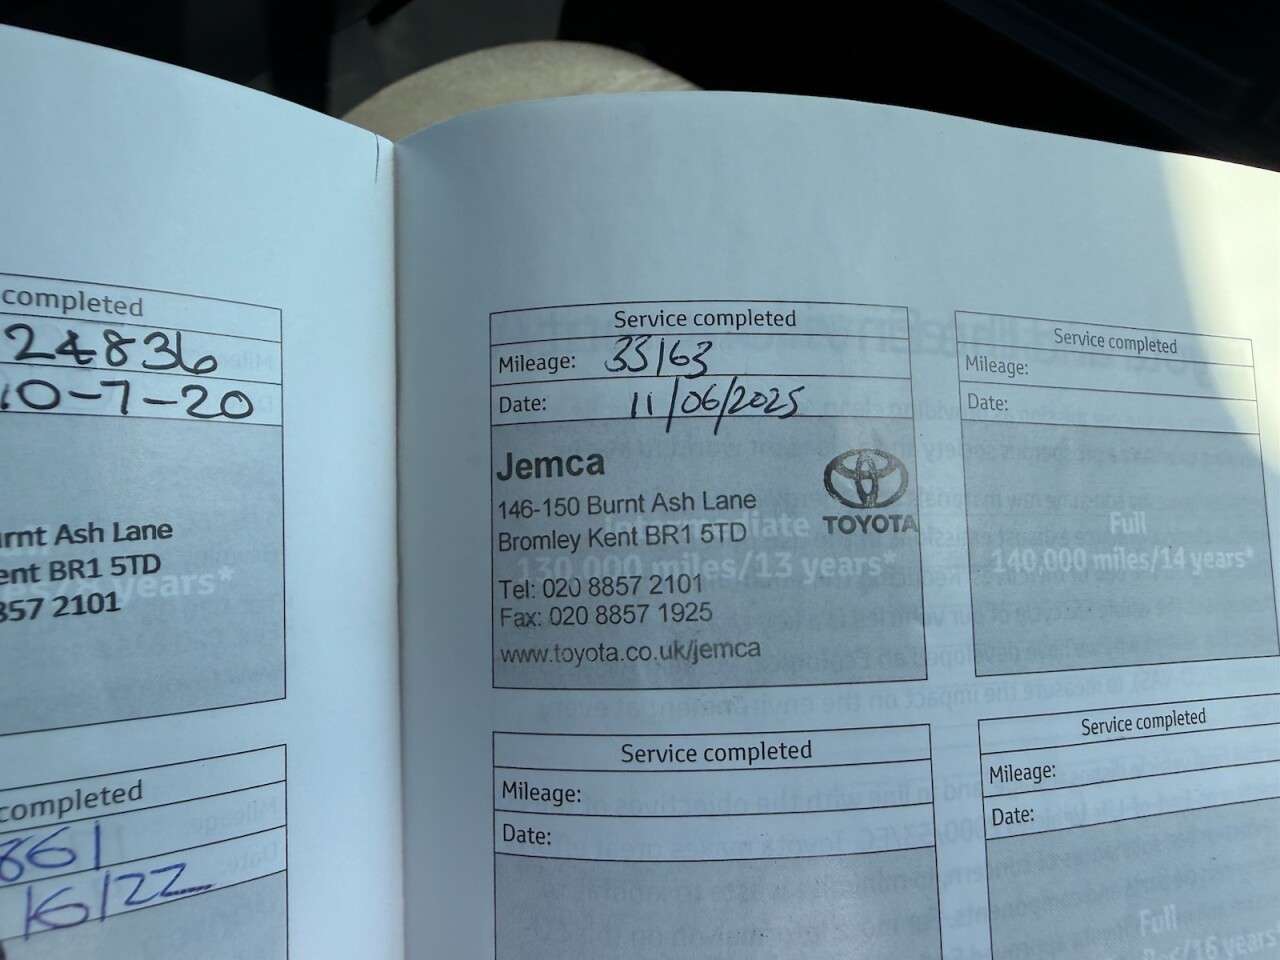 completed
24836
10-7-20
urnt Ash Lane
ent BR1 5TD
years*
857 2101
completed
861
16/22
Service completed
Mileage: 33163
Date: 11/06/2025
Jemca
146-150 Burnt Ash Lane
Bromley Kent BR1 5TD
TOYOTA
Intermediate
130,000 miles/13 years*
Tel: 020 8857 2101
Fax: 020 8857 1925
www.toyota.co.uk/jemca
Service completed
Mileage:
Date:
Full
140,000 miles/14 years*
Service completed
Mileage:
Date:
Service completed
Mileage:
Date:
Full
/16 years*